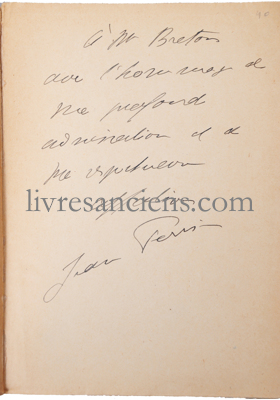 à M Breton
avec l'hommage de
ma profond
admiration et de
ma respectueuse
affection
livresanciens.com
Jean Paris